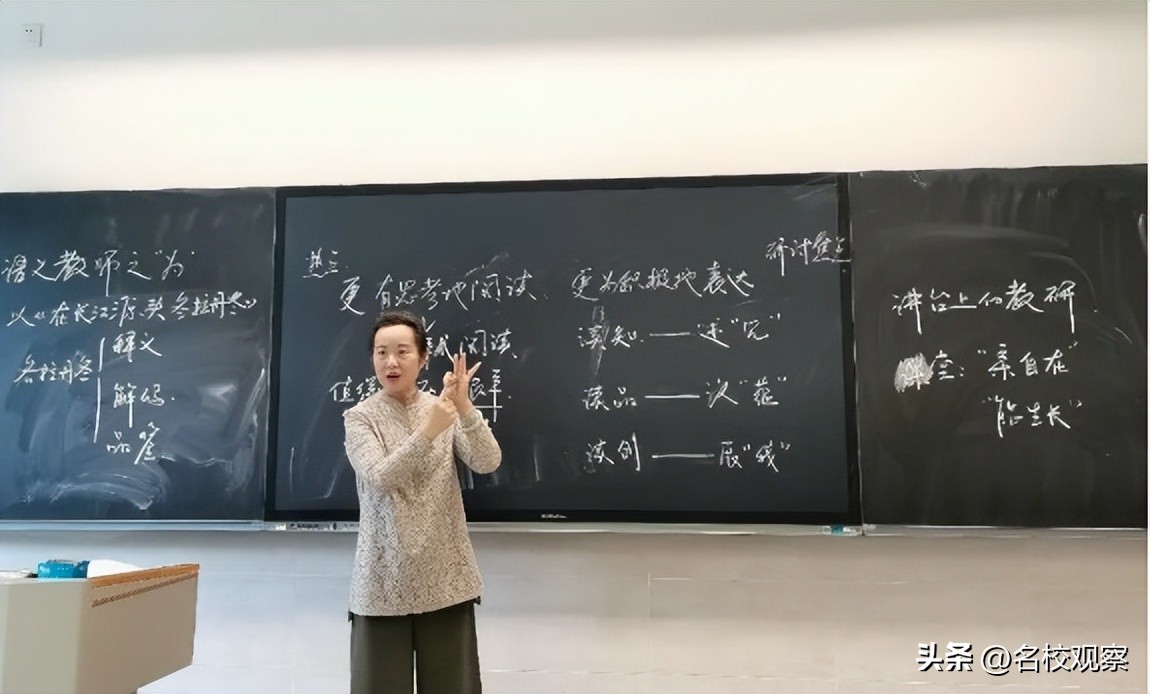 语文教师之"为"
以《在长江源头各拉丹冬》
各拉丹冬
释义
解码.
品鉴
热点:
更有思考地阅读、更为积极地表达
式阅读
研讨焦点
读知——述"完"
读品——议"范"
读创——展"我"
讲台上的教研
课堂:"亲自在"
"能生长"
头条 @名校观察